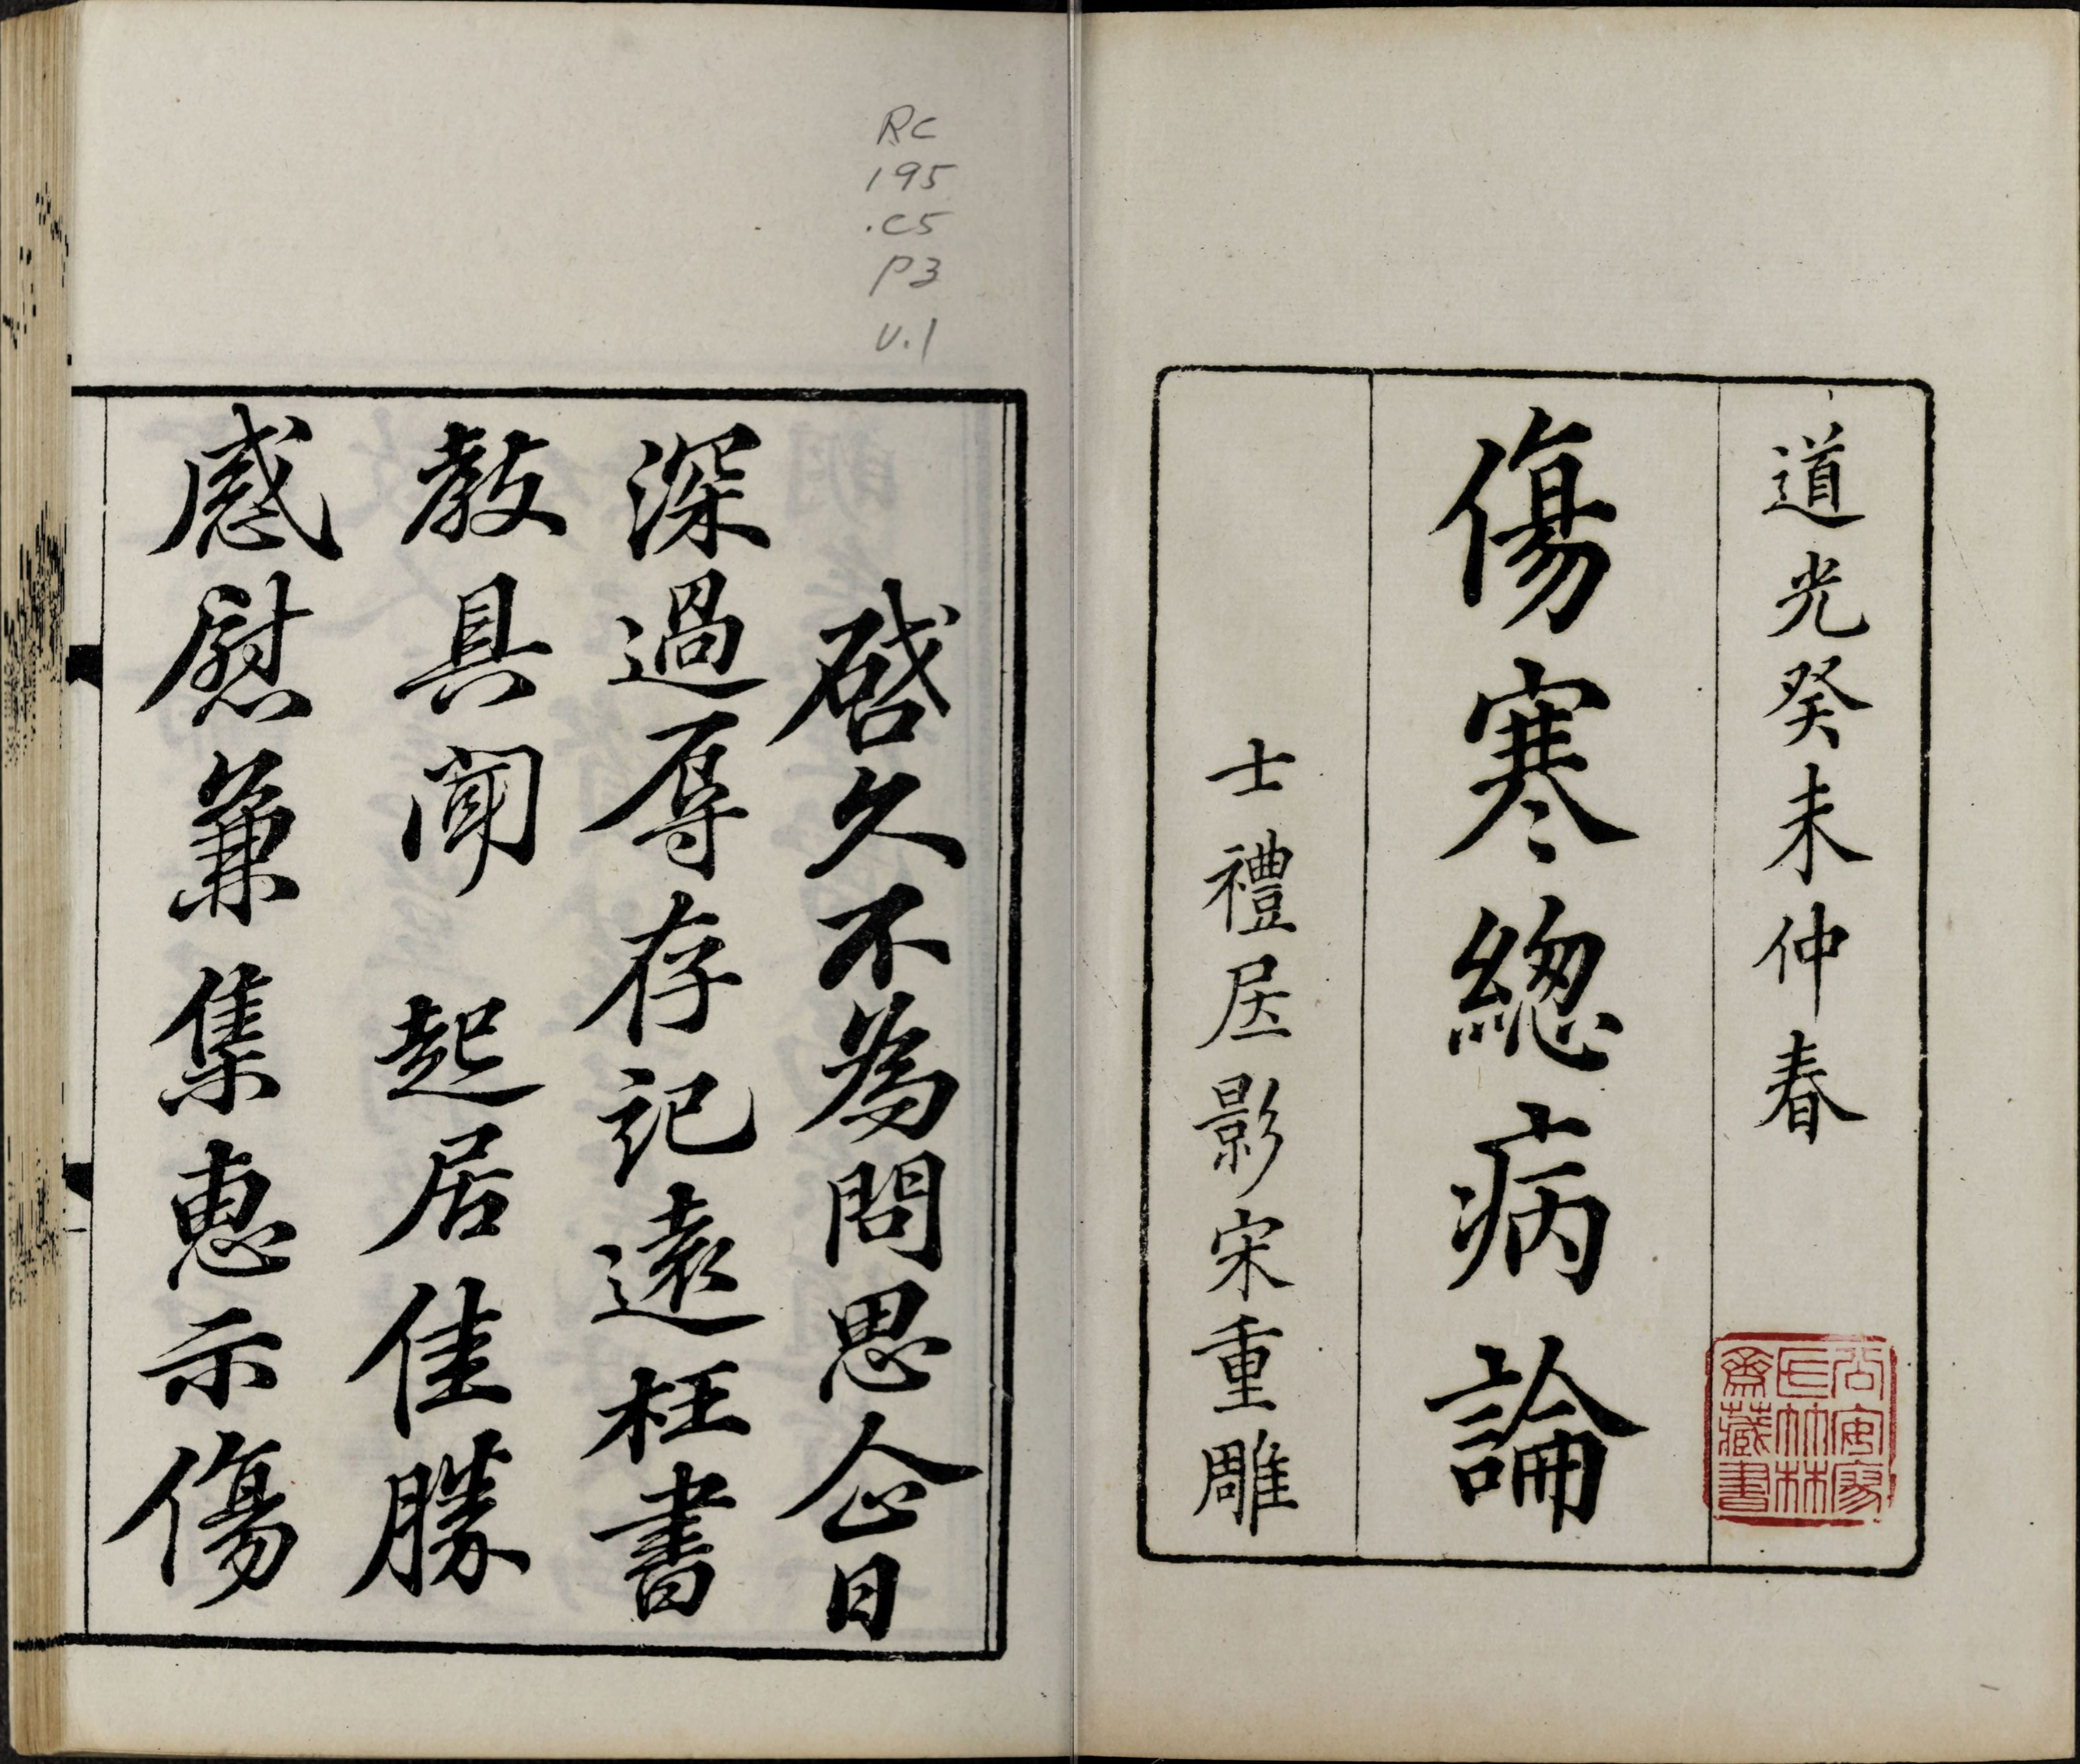 道光癸未仲春
傷寒緫病論
士禮㞐影宋重雕
RC
195
.C5
P3
V.1
啓久不為問思企日
深過辱存記遠枉書
教具聞 起居佳勝
感慰兼集惠示傷